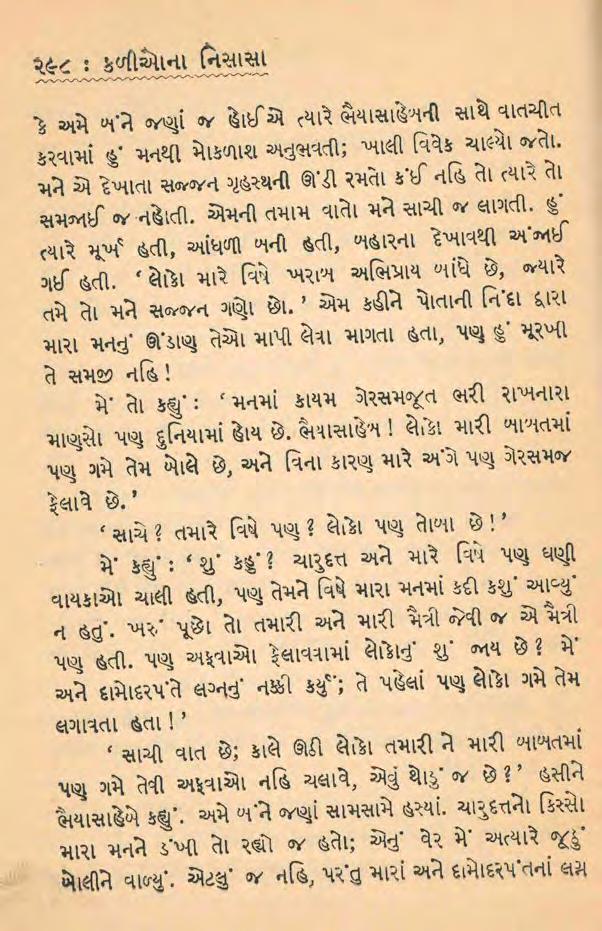 ૨૯૮ : કળીઓના નિસાસા
કે અમે બંને જણાં જ હોઈએ ત્યારે ભૈયાસાહેબની સાથે વાતચીત
કરવામાં હું મનથી મોકળાશ અનુભવતી; ખાલી વિવેક ચાલ્યો જતો.
મને એ દેખાતા સજ્જન ગૃહસ્થની ઊંડી રમતો કંઈ નહિ તો ત્યારે તો
સમજાઈ જ નહોતી. એમની તમામ વાતો મને સાચી જ લાગતી. હું
ત્યારે મૂર્ખ હતી, આંધળી બની હતી, બહારના દેખાવથી અંજાઈ
ગઈ હતી. ‘લોકો મારે વિષે ખરાબ અભિપ્રાય બાંધે છે, જ્યારે
તમે તો મને સજ્જન ગણો છો.’ એમ કહીને પોતાની નિંદા દ્વારા
મારા મનનું ઊંડાણ તેઓ માપી લેવા માગતા હતા, પણ હું મૂરખી
તે સમજી નહિ!
મેં તો કહ્યું: ‘મનમાં કાયમ ગેરસમજૂત ભરી રાખનારા
માણસો પણ દુનિયામાં હોય છે. ભૈયાસાહેબ! લોકો મારી બાબતમાં
પણ ગમે તેમ બોલે છે, અને વિના કારણ મારે અંગે પણ ગેરસમજ
ફેલાવે છે.’
‘સાચે? તમારે વિષે પણ? લોકો પણ તોબા છે!’
મેં કહ્યું: ‘શું કહું? ચારુદત્ત અને મારે વિષે પણ ઘણી
વાયકાઓ ચાલી હતી, પણ તેમને વિષે મારા મનમાં કદી કશું આવ્યું
ન હતું. ખરું પૂછો તો તમારી અને મારી મૈત્રી જેવી જ એ મૈત્રી
પણ હતી. પણ અફવાઓ ફેલાવવામાં લોકોનું શું જાય છે? મેં
અને દામોદરપંતે લગ્નનું નક્કી કર્યું; તે પહેલાં પણ લોકો ગમે તેમ
લગાવતા હતા!’
‘સાચી વાત છે; કાલે ઊઠી લોકો તમારી ને મારી બાબતમાં
પણ ગમે તેવી અફવાઓ નહિ ચલાવે, એવું થોડું જ છે?’ હસીને
ભૈયાસાહેબે કહ્યું. અમે બંને જણાં સામસામે હસ્યાં. ચારુદત્તનો કિસ્સો
મારા મનને ડંખી તો રહ્યો જ હતો; એનું વેર મેં અત્યારે જૂઠું
બોલીને વાળ્યું. એટલું જ નહિ, પરંતુ મારાં અને દામોદરપંતનાં લગ્ન